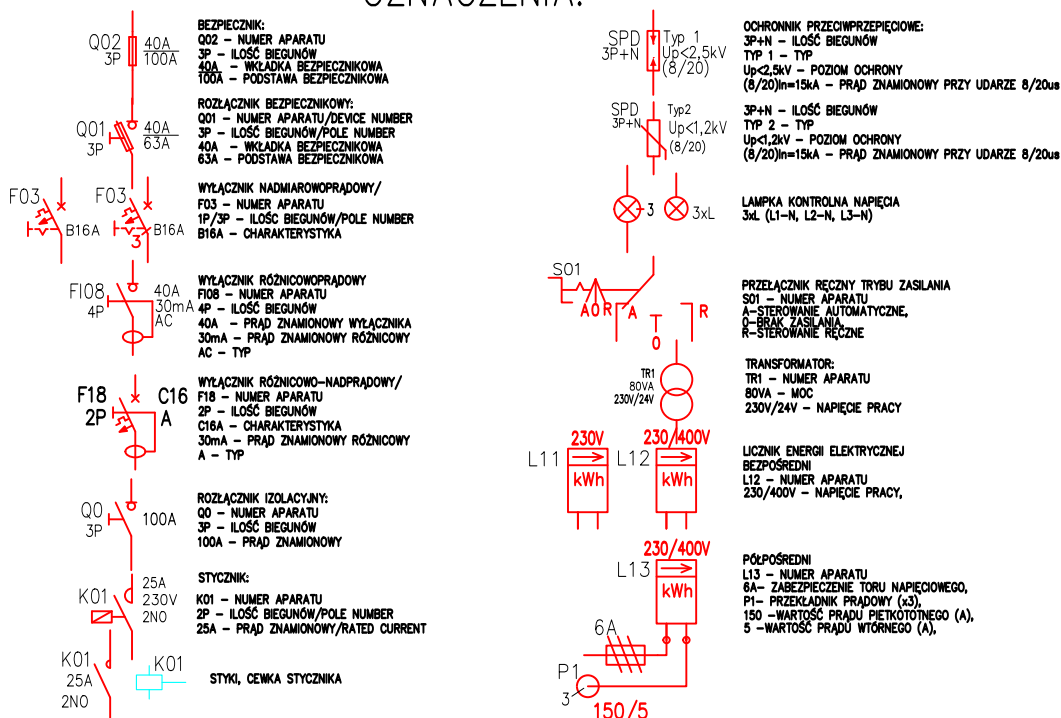 OZNACZENIA:
Q02
3P
40A
100A
BEZPIECZNIK:
Q02 – NUMER APARATU
3P – ILOŚĆ BIEGUNÓW
40A – WKŁADKA BEZPIECZNIKOWA
100A – PODSTAWA BEZPIECZNIKOWA
Q01
3P
40A
63A
ROZŁĄCZNIK BEZPIECZNIKOWY:
Q01 – NUMER APARATU/DEVICE NUMBER
3P – ILOŚĆ BIEGUNÓW/POLE NUMBER
40A – WKŁADKA BEZPIECZNIKOWA
63A – PODSTAWA BEZPIECZNIKOWA
F03
B16A
F03
3
B16A
WYŁĄCZNIK NADMIAROWOPRĄDOWY/
F03 – NUMER APARATU
1P/3P – ILOŚĆ BIEGUNÓW/POLE NUMBER
B16A – CHARAKTERYSTYKA
FI08
4P
40A
30mA
AC
WYŁĄCZNIK RÓŻNICOWOPRĄDOWY
FI08 – NUMER APARATU
4P – ILOŚĆ BIEGUNÓW
40A – PRĄD ZNAMIONOWY WYŁĄCZNIKA
30mA – PRĄD ZNAMIONOWY RÓŻNICOWY
AC – TYP
F18
2P
C16
A
WYŁĄCZNIK RÓŻNICOWO–NADPRĄDOWY/
F18 – NUMER APARATU
2P – ILOŚĆ BIEGUNÓW
C16A – CHARAKTERYSTYKA
30mA – PRĄD ZNAMIONOWY RÓŻNICOWY
A – TYP
Q0
3P
100A
ROZŁĄCZNIK IZOLACYJNY:
Q0 – NUMER APARATU
3P – ILOŚĆ BIEGUNÓW
100A – PRĄD ZNAMIONOWY
K01
25A
230V
2NO
STYCZNIK:
K01 – NUMER APARATU
2P – ILOŚĆ BIEGUNÓW/POLE NUMBER
25A – PRĄD ZNAMIONOWY/RATED CURRENT
K01
25A
2NO
K01
STYKI, CEWKA STYCZNIKA
SPD
3P+N
Typ 1
Up<2,5kV
(8/20)
OCHRONNIK PRZECIWPRZEPIĘCIOWE:
3P+N – ILOŚĆ BIEGUNÓW
TYP 1 – TYP
Up<2,5kV – POZIOM OCHRONY
(8/20)In=15kA – PRĄD ZNAMIONOWY PRZY UDARZE 8/20us
SPD
3P+N
Typ2
Up<1,2kV
(8/20)
3P+N – ILOŚĆ BIEGUNÓW
TYP 2 – TYP
Up<1,2kV – POZIOM OCHRONY
(8/20)In=15kA – PRĄD ZNAMIONOWY PRZY UDARZE 8/20us
3
3xL
LAMPKA KONTROLNA NAPIĘCIA
3xL (L1–N, L2–N, L3–N)
S01
A0R
A
0
R
PRZEŁĄCZNIK RĘCZNY TRYBU ZASILANIA
S01 – NUMER APARATU
A–STEROWANIE AUTOMATYCZNE,
0–BRAK ZASILANIA,
R–STEROWANIE RĘCZNE
TR1
80VA
230V/24V
TRANSFORMATOR:
TR1 – NUMER APARATU
80VA – MOC
230V/24V – NAPIĘCIE PRACY
230V
L11
kWh
230/400V
L12
kWh
LICZNIK ENERGII ELEKTRYCZNEJ
BEZPOŚREDNI
L12 – NUMER APARATU
230/400V – NAPIĘCIE PRACY,
230/400V
L13
kWh
6A
P1
3
150/5
PÓŁPOŚREDNI
L13 – NUMER APARATU
6A– ZABEZPIECZENIE TORU NAPIĘCIOWEGO,
P1– PRZEKŁADNIK PRĄDOWY (x3),
150 –WARTOŚĆ PRĄDU PIETKOTOTNEGO (A),
5 –WARTOŚĆ PRĄDU WTÓRNEGO (A),